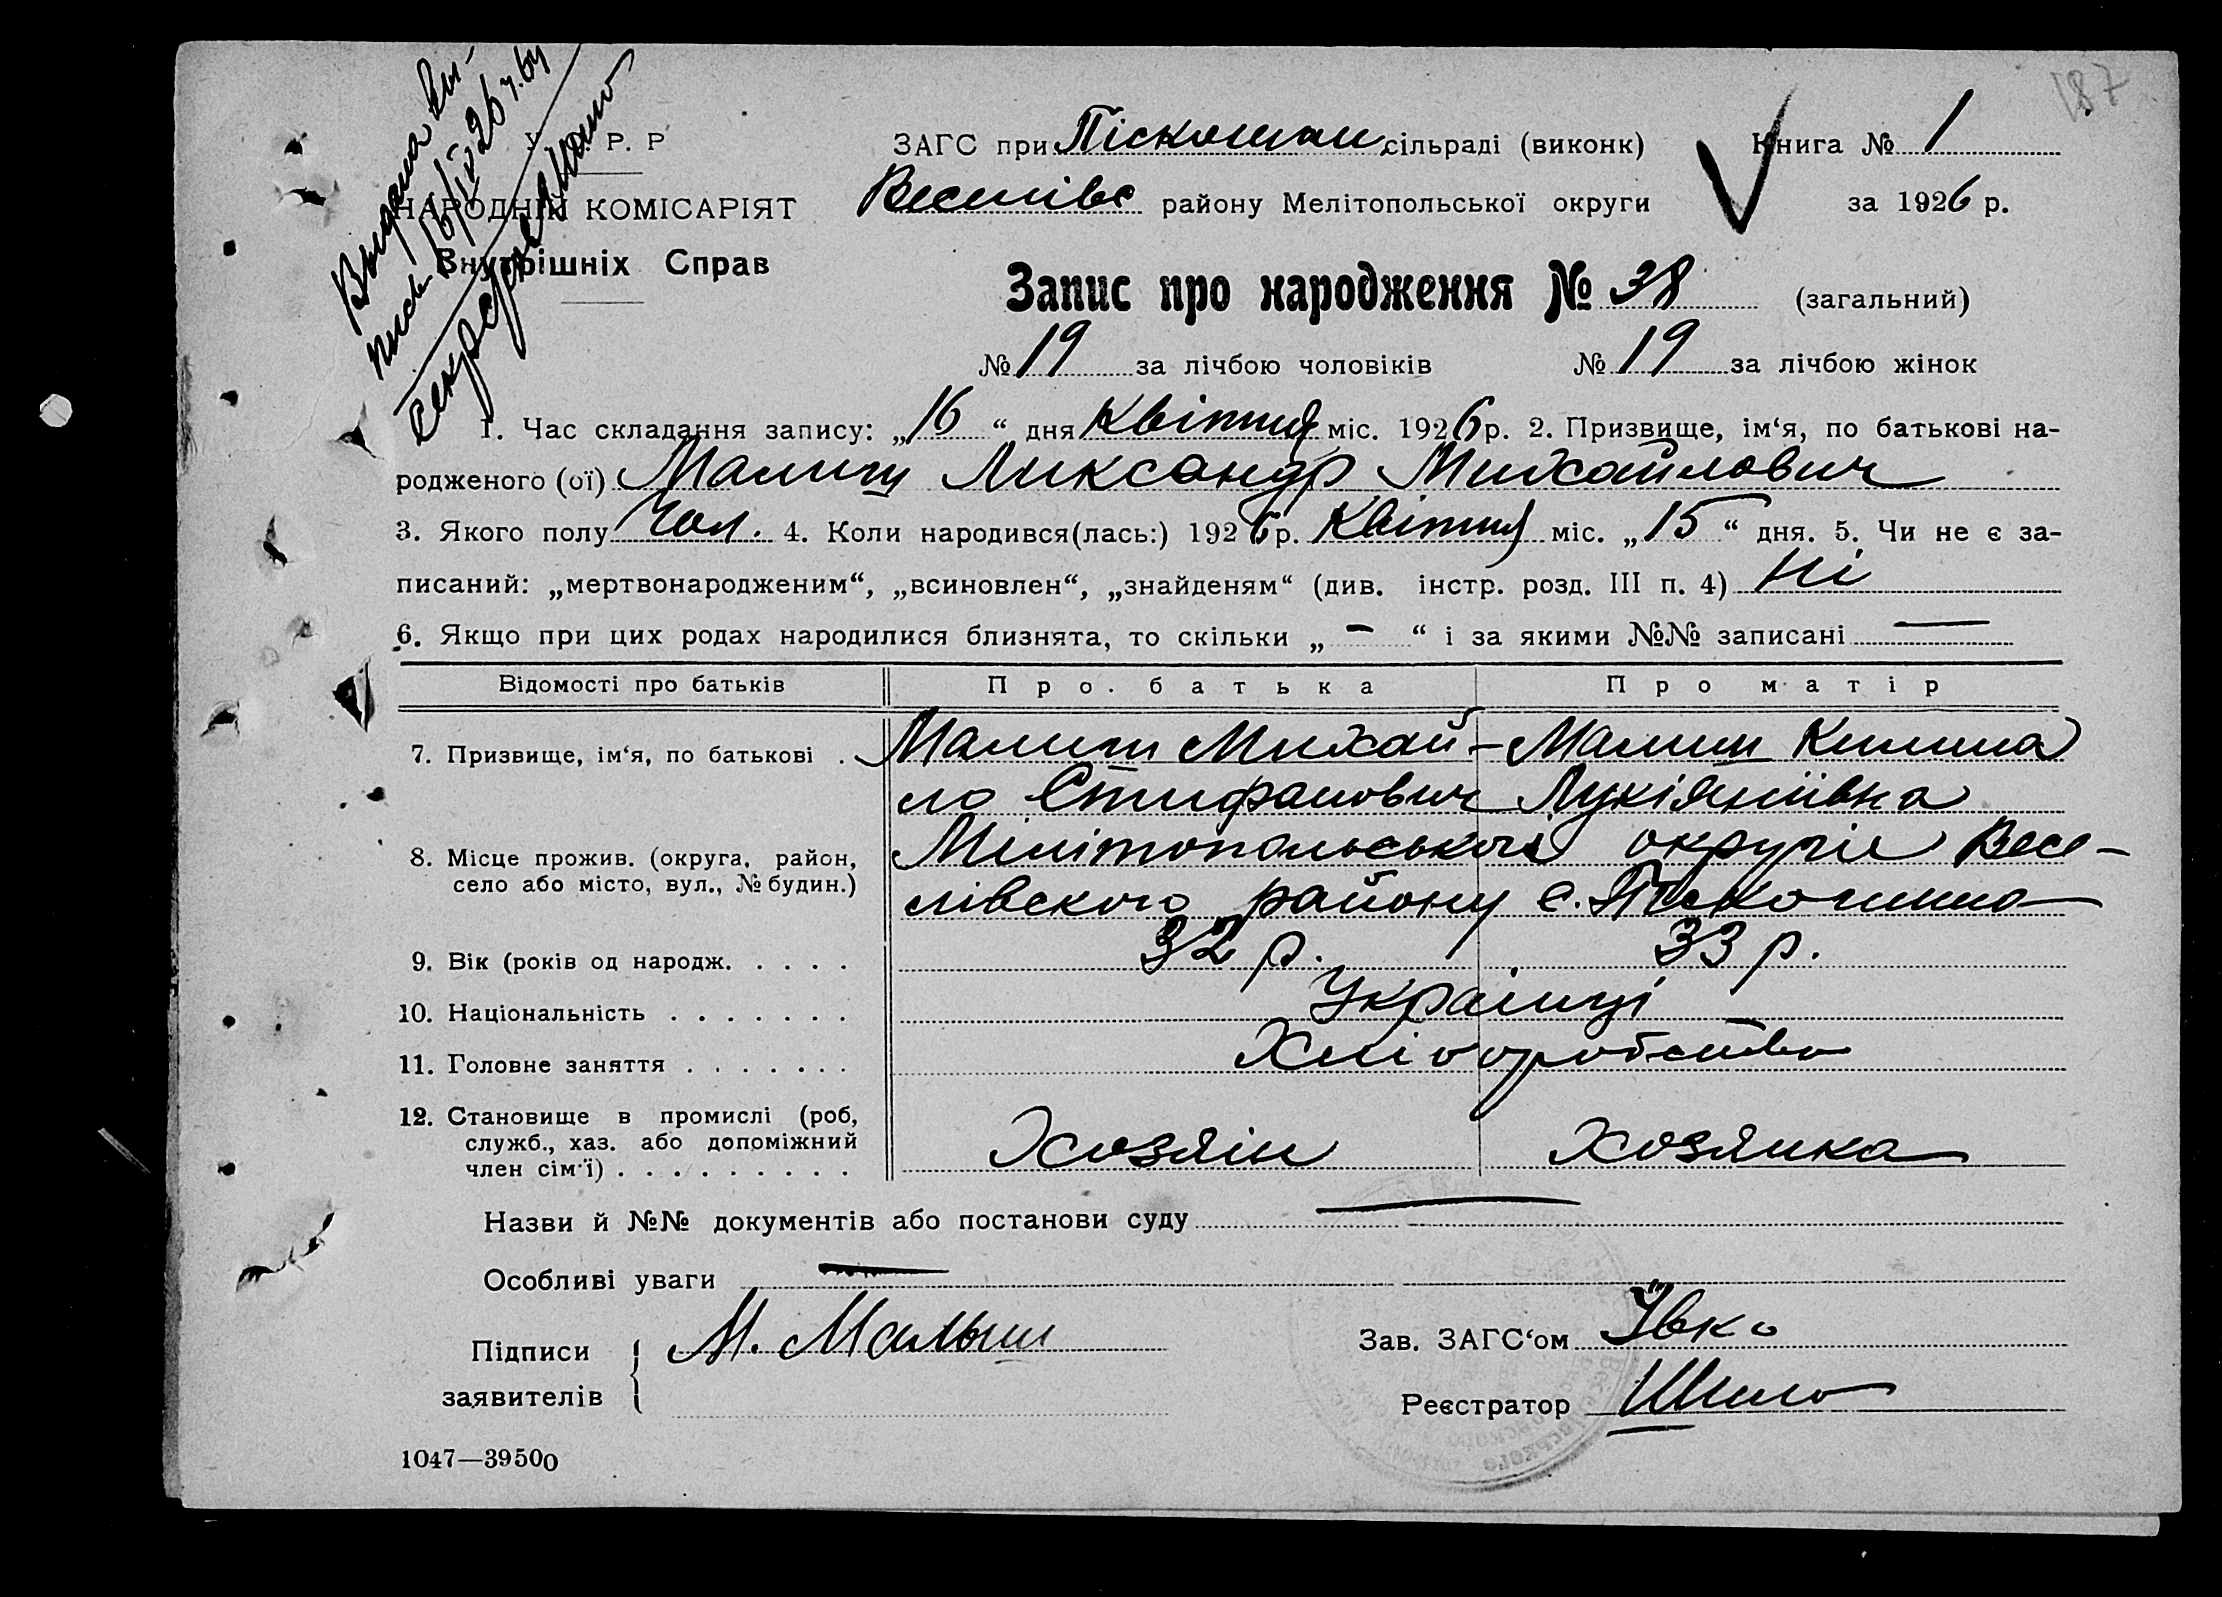 187
Выдана вы-
пись 16/IV 26 г. бу
Секретарь
У. Р. Р
НАРОДНІЙ КОМІСАРІЯТ
Внутрішніх Справ
ЗАГС при Піскошан сільраді (виконк) Книга № 1
Веселівс району Мелітопольської округи за 1926 р.
Запис про народження № 38 (загальний)
№ 19 за лічбою чоловіків № 19 за лічбою жінок
1. Час складання запису: „16“ дня Квітня міс. 1926 р. 2. Призвище, ім‘я, по батькові на-
родженого (ої) Малиш Ликсандр Михайлович
3. Якого полу Чол. 4. Коли народився(лась:) 1926 р. Квітня міс. „15“ дня. 5. Чи не є за-
писаний: „мертвонародженим“, „всиновлен“, „знайденям“ (див. інстр. розд. III п. 4) Ні
6. Якщо при цих родах народилися близнята, то скільки „ — “ і за якими №№ записані —
Відомості про батьків Про батька Про матір
7. Призвище, ім‘я, по батькові . Малиш Михай- Малиш Килина
ло Стифанович Лукіяніївна
8. Місце прожив. (округа, район, Мілітопольської округи Весе-
село або місто, вул., № будин.) лівского району с. Піскошино
9. Вік (років од народж. . . . . 32 р. 33 р.
10. Національність . . . . . . . Українці
11. Головне заняття . . . . . . . Хліборобство
12. Становище в промислі (роб,
служб., хаз. або допоміжний Хозяін Хозяйка
член сім‘ї) . . . . . . . . .
Назви й №№ документів або постанови суду —
Особливі уваги —
Підписи М. Малыш Зав. ЗАГС‘ом Ївко
заявителів Реєстратор Шило
1047—39500